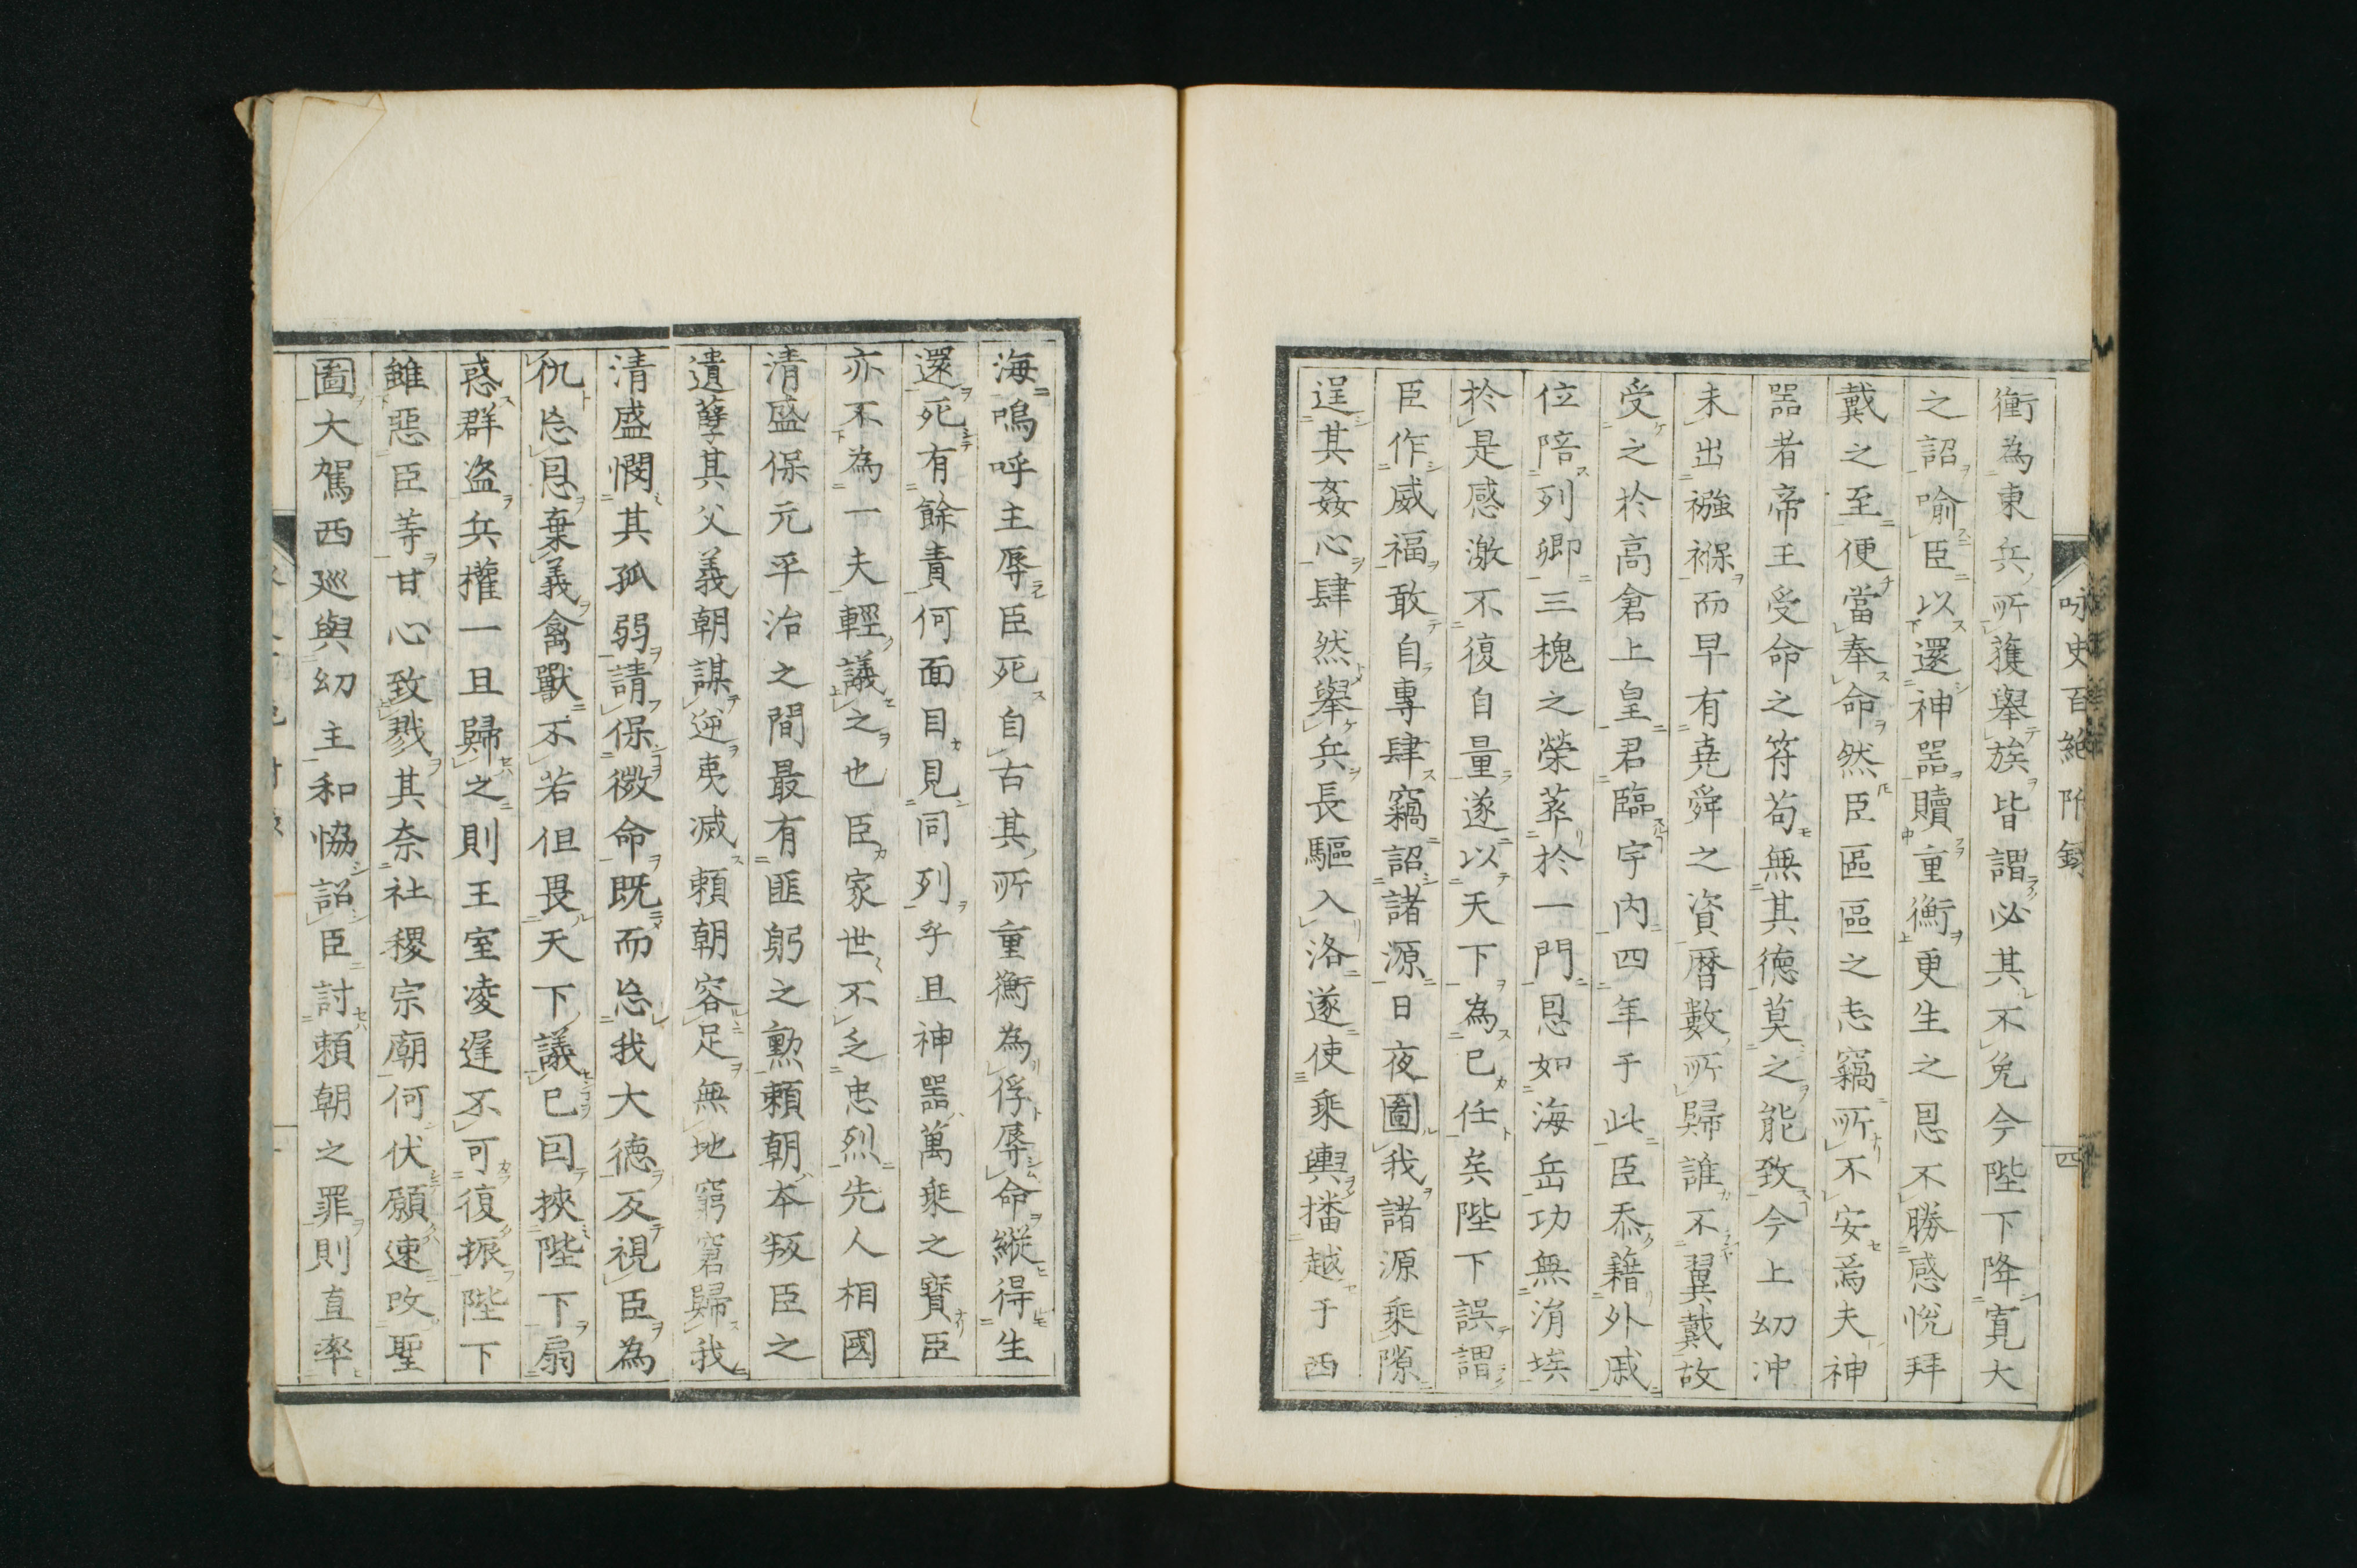 咏史百絶附録 四
衡為東兵所獲舉族皆謂必其不免今陛下降寛大
之詔喻臣以還神器贖重衡更生之恩不勝感悅拜
戴之至便當奉命然臣區區之志竊所不安焉夫神
器者帝王受命之符苟無其德莫之能致今上幼冲
未出襁褓而早有堯舜之資曆數所歸誰不翼戴故
受之於高倉上皇君臨宇內四年于此臣忝藉外戚
位陪列卿三槐之榮萃於一門恩如海岳功無涓埃
於是感激不復自量遂以天下為己任矣陛下誤謂
臣作威福敢自專肆竊詔諸源日夜圖我諸源乘隙
逞其姦心肆然舉兵長驅入洛遂使乘輿播越于西
海嗚呼主辱臣死自古其所重衡為俘辱命縱得生
還死有餘責何面目見同列乎且神器萬乘之寶臣
亦不為一夫輕議之也臣家世不乏忠烈先人相國
清盛保元平治之間最有匪躬之勲頼朝本叛臣之
遺孽其父義朝謀逆夷滅頼朝容足無地窮窘歸我
清盛憫其孤弱請保微命既而忘我大德反視臣為
仇忘恩棄義禽獸不若但畏天下議己囙挾陛下扇
惑群盗兵權一旦歸之則王室凌遅不可復振陛下
雖惡臣等甘心致戮其奈社稷宗廟何伏願速改聖
圖大駕西廵與幼主和恊詔臣討頼朝之罪則直率